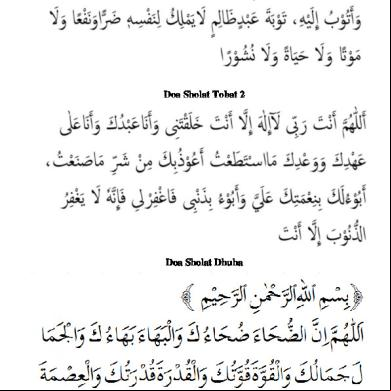 وَأَتُوْبُ إِلَيْهِ، تَوْبَةَ عَبْدٍ ظَالِمٍ لَا يَمْلِكُ لِنَفْسِهِ ضَرًّا وَنَفْعًا وَلَا
مَوْتًا وَلَا حَيَاةً وَلَا نُشُوْرًا
Doa Sholat Tobat 2
أَللّٰهُمَّ أَنْتَ رَبِّى لَآ إِلٰهَ إِلَّا أَنْتَ خَلَقْتَنِى وَأَنَا عَبْدُكَ وَأَنَا عَلَى
عَهْدِكَ وَوَعْدِكَ مَا اسْتَطَعْتُ أَعُوْذُ بِكَ مِنْ شَرِّ مَاصَنَعْتُ،
أَبُوْءُ لَكَ بِنِعْمَتِكَ عَلَيَّ وَأَبُوْءُ بِذَنْبِى فَاغْفِرْ لِي فَإِنَّهُ لَا يَغْفِرُ
الذُّنُوْبَ إِلَّا أَنْتَ
Doa Sholat Dhuha
﴿ بِسْمِ اللّٰهِ الرَّحْمٰنِ الرَّحِيْمِ ﴾
اَللّٰهُمَّ اِنَّ الضُّحَآءَ ضُحَاءُكَ وَالْبَهَاءَ بَهَاءُكَ وَالْجَمَا
لَ جَمَالُكَ وَالْقُوَّةَ قُوَّتُكَ وَالْقُدْرَةَ قُدْرَتُكَ وَالْعِصْمَةَ